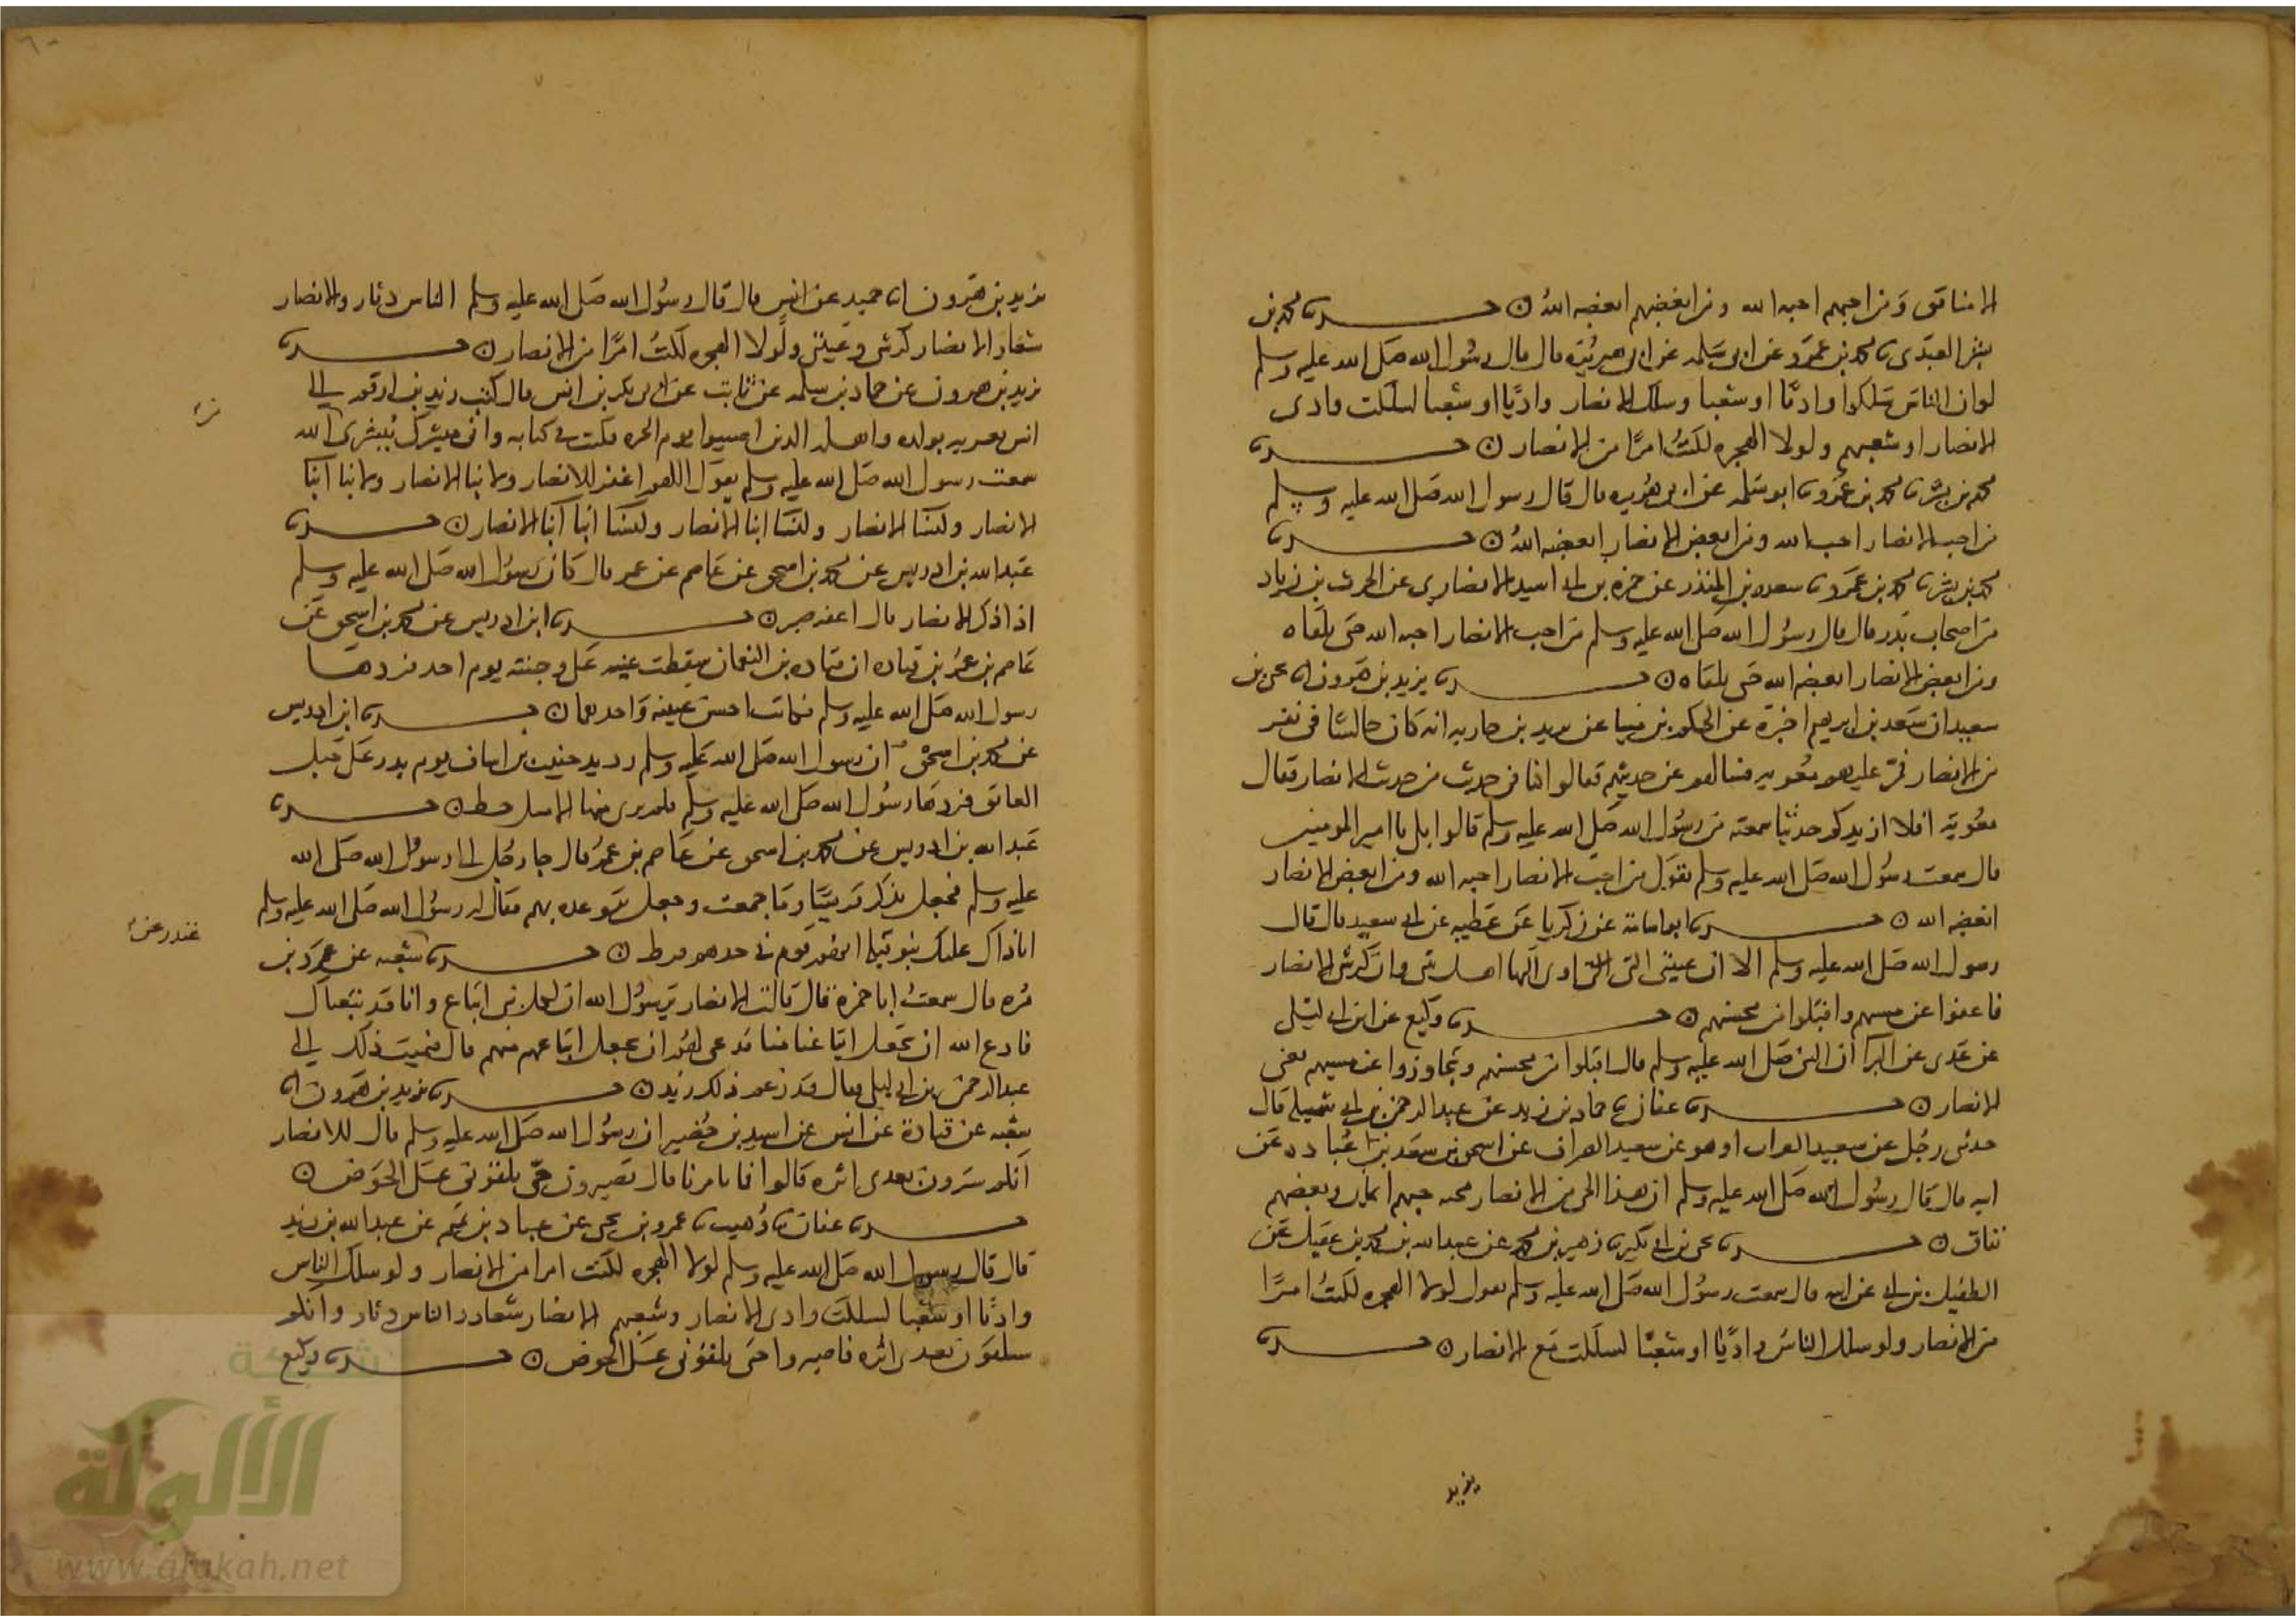 الا منافق ومن احبهم احبه الله ومن ابغضهم ابغضه الله ه حدثنا محمد بن
بشر العبدي نا محمد بن عمرو عن ابي سلمه عن ابي هريره قال قال رسول الله صلى الله عليه وسلم
لو ان الناس سلكوا واديا او شعبا وسلك الانصار واديا او شعبا لسلكت وادي
الانصار او شعبهم ولولا الهجره لكنت امرا من الانصار ه حدثنا
محمد بن بشر نا محمد بن عمرو نا ابو سلمه عن ابي هريره قال قال رسول الله صلى الله عليه وسلم
من احب الانصار احبه الله ومن ابغض الانصار ابغضه الله ه حدثنا
محمد بن بشر نا محمد بن عمرو نا سعد بن المنذر عن حمزه بن ابي اسيد الانصاري عن الحرث بن زياد
من اصحاب بدر قال قال رسول الله صلى الله عليه وسلم من احب الانصار احبه الله حتى يلقاه
ومن ابغض الانصار ابغضه الله حتى يلقاه ه حدثنا يزيد بن هرون انا يحيى بن
سعيد ان سعد بن ابرهيم اخبره عن الحكم بن مينا عن يزيد بن جاريه انه كان جالسا في نفر
من الانصار فمر عليهم معويه فسالهم عن حديثهم فقالوا كنا في حديث من حديث الانصار فقال
معويه افلا ازيدكم حديثا سمعته من رسول الله صلى الله عليه وسلم قالوا بلى يا امير المومنين
قال سمعت رسول الله صلى الله عليه وسلم يقول من احب الانصار احبه الله ومن ابغض الانصار
ابغضه الله ه حدثنا ابو اسامة عن زكريا عن عطيه عن ابي سعيد قال قال
رسول الله صلى الله عليه وسلم الا ان عيبتي التي اوي اليها اهل بيتي وان كرشي الانصار
فاعفوا عن مسيهم واقبلوا من محسنهم ه حدثنا وكيع عن ابن ابي ليلى
عن عدي عن البرا ان النبي صلى الله عليه وسلم قال اقبلوا من محسنهم وتجاوزوا عن مسيهم يعني
الانصار ه حدثنا عفان نا حماد بن زيد عن عبد الرحمن بن ابي شميله قال
حدثني رجل عن سعيد الصراف او هو عن سعيد الصراف عن اسحق بن سعد بن عباده عن
ابيه قال قال رسول الله صلى الله عليه وسلم ان هذا الحي من الانصار محنه حبهم ايمان وبغضهم
نفاق ه حدثنا يحيى بن ابي بكير نا زهير بن محمد عن عبد الله بن محمد بن عقيل عن
الطفيل بن ابي عن ابيه قال سمعت رسول الله صلى الله عليه وسلم يقول لولا الهجره لكنت امرا
من الانصار ولو سلك الناس واديا او شعبا لسلكت مع الانصار ه حدثنا
يزيد
يزيد بن هرون انا حميد عن انس قال قال رسول الله صلى الله عليه وسلم الناس دثار والانصار
شعار الانصار كرشي وعيبتي ولولا الهجره لكنت امرا من الانصار ه حدثنا
يزيد بن هرون عن حماد بن سلمه عن ثابت عن ابي بكر بن انس قال كتب زيد بن ارقم الى
انس يعزيه بولده واهله الذين اصيبوا يوم الحره فكتب في كتابه واني مبشرك ببشرى من الله
سمعت رسول الله صلى الله عليه وسلم يقول اللهم اغفر للانصار ولابنا الانصار ولابنا ابنا
الانصار ولنسا الانصار ولنسا ابنا الانصار ولنسا ابنا ابنا الانصار ه حدثنا
عبد الله بن ادريس عن محمد بن اسحق عن عاصم بن عمر قال كان رسول الله صلى الله عليه وسلم
اذا ذكر الانصار قال اعفه صبر ه حدثنا ابن ادريس عن محمد بن اسحق عن
عاصم بن عمر بن قتاده ان قتاده بن النعمان سقطت عينه على وجنته يوم احد فردها
رسول الله صلى الله عليه وسلم فكانت احسن عينه واحدهما ه حدثنا ابن ادريس
عن محمد بن اسحق ان رسول الله صلى الله عليه وسلم رد يد خبيب بن اساف يوم بدر على حبل
العاتق فردها رسول الله صلى الله عليه وسلم فلم ير منها الا مثل خط ه حدثنا
عبد الله بن ادريس عن محمد بن اسحق عن عاصم بن عمر قال جا رجل الى رسول الله صلى الله
عليه وسلم فجعل يذكر قريشا وما جمعت وجعل يتوعده بهم فقال له رسول الله صلى الله عليه وسلم
غندر عن
شعبه عن عمرو بن
مره قال سمعت ابا حمزة قال قالت الانصار يرسول الله ان لكل نبي اتباع وانا قد تبعناك
فادع الله ان يجعل اتباعنا منا فدعى لهم ان يجعل اتباعهم منهم قال فنميت ذلك الى
عبد الرحمن بن ابي ليلى فقال قد زعم ذلك زيد ه حدثنا يزيد بن هرون انا
شعبه عن قتادة عن انس عن اسيد بن حضير ان رسول الله صلى الله عليه وسلم قال للانصار
انكم سترون بعدي اثره قالوا فما تامرنا قال تصبرون حتى تلقوني على الحوض ه
حدثنا عفان نا وهيب نا عمرو بن يحيى عن عباد بن تميم عن عبد الله بن زيد
قال قال رسول الله صلى الله عليه وسلم لولا الهجره لكنت امرا من الانصار ولو سلك الناس
واديا او شعبا لسلكت وادي الانصار وشعبهم الانصار شعار والناس دثار وانكم
ستلقون بعدي اثره فاصبروا حتى تلقوني على الحوض ه حدثنا وكيع
شبكة
الألوكة
www.alukah.net